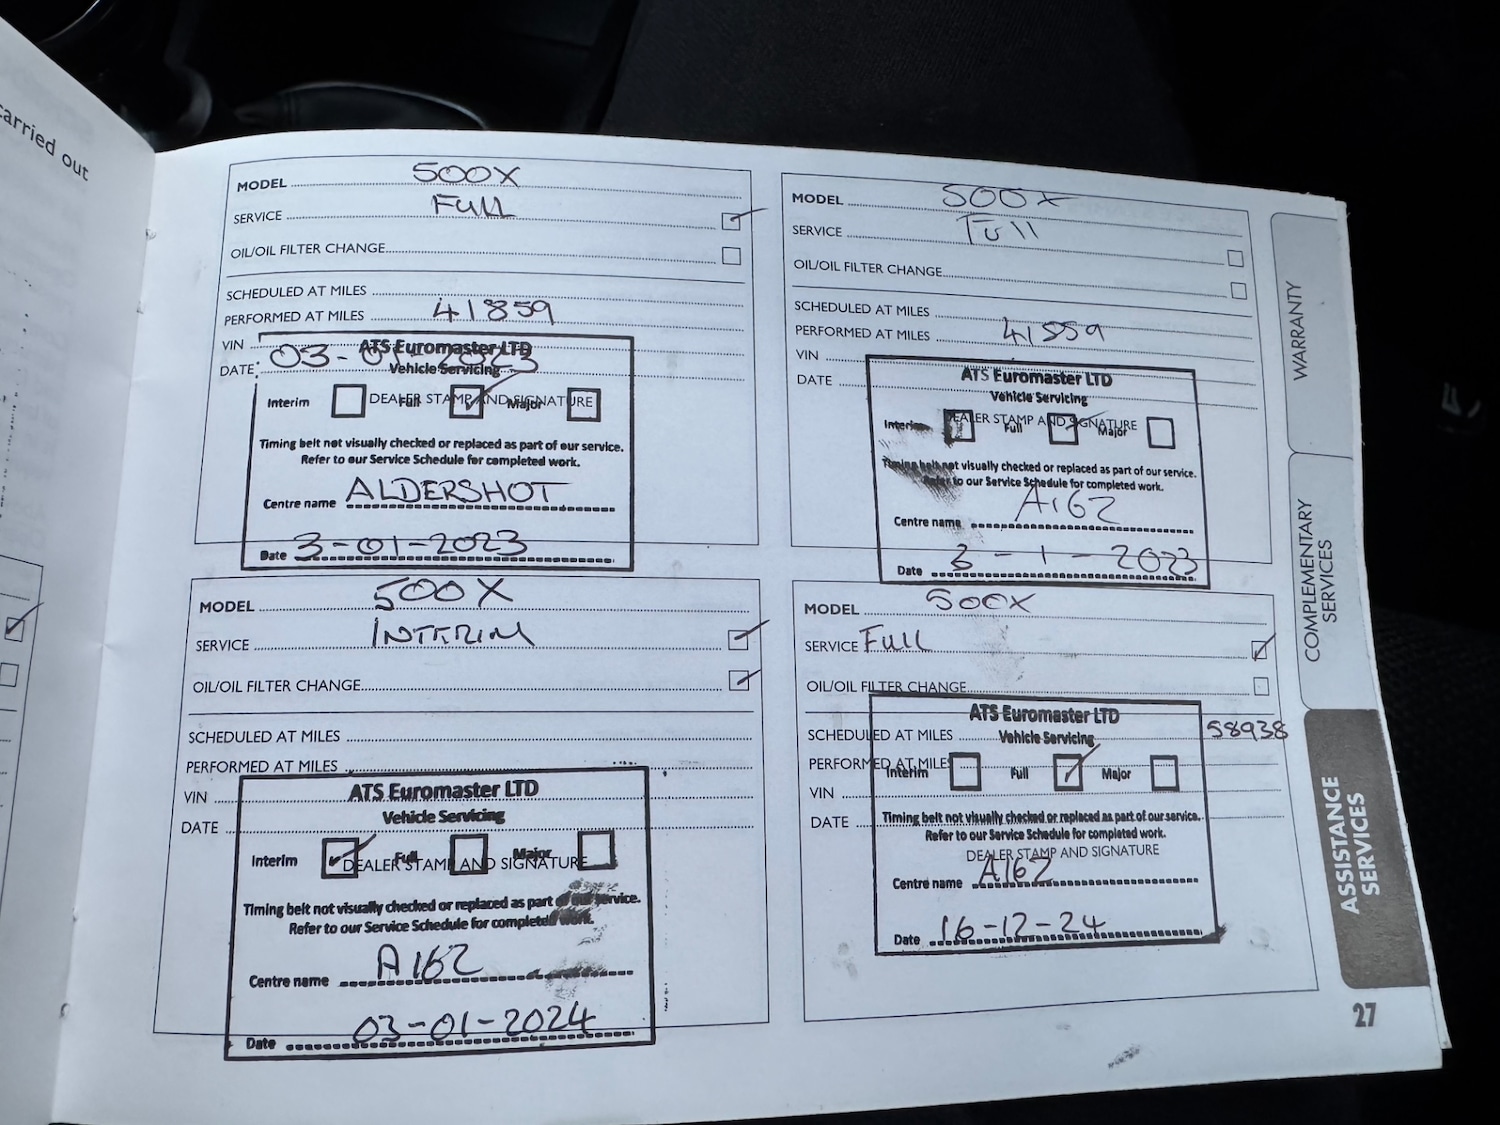 carried out
MODEL 500X
SERVICE FULL
OIL/OIL FILTER CHANGE
SCHEDULED AT MILES
PERFORMED AT MILES 41859
VIN
DATE: 03-01-2023
ATS Euromaster LTD
Vehicle Servicing
DEALER STAMP AND SIGNATURE
Interim Full Major
Timing belt not visually checked or replaced as part of our service.
Refer to our Service Schedule for completed work.
Centre name ALDERSHOT
Date 3-01-2023
MODEL 500X
SERVICE Full
OIL/OIL FILTER CHANGE
SCHEDULED AT MILES
PERFORMED AT MILES 41559
VIN
DATE
ATS Euromaster LTD
Vehicle Servicing
DEALER STAMP AND SIGNATURE
Interim Full Major
Timing belt not visually checked or replaced as part of our service.
Refer to our Service Schedule for completed work.
Centre name A162
Date 3-1-2023
MODEL 500X
SERVICE INTERIM
OIL/OIL FILTER CHANGE
SCHEDULED AT MILES
PERFORMED AT MILES
VIN
DATE
ATS Euromaster LTD
Vehicle Servicing
Interim Full Major
DEALER STAMP AND SIGNATURE
Timing belt not visually checked or replaced as part of our service.
Refer to our Service Schedule for completed work.
Centre name A162
Date 03-01-2024
MODEL 500X
SERVICE Full
OIL/OIL FILTER CHANGE
ATS Euromaster LTD
SCHEDULED AT MILES 58938
Vehicle Servicing
PERFORMED AT MILES
Interim Full Major
VIN
DATE
Timing belt not visually checked or replaced as part of our service.
Refer to our Service Schedule for completed work.
DEALER STAMP AND SIGNATURE
Centre name A162
Date 16-12-24
WARRANTY
COMPLEMENTARY
SERVICES
ASSISTANCE
SERVICES
27